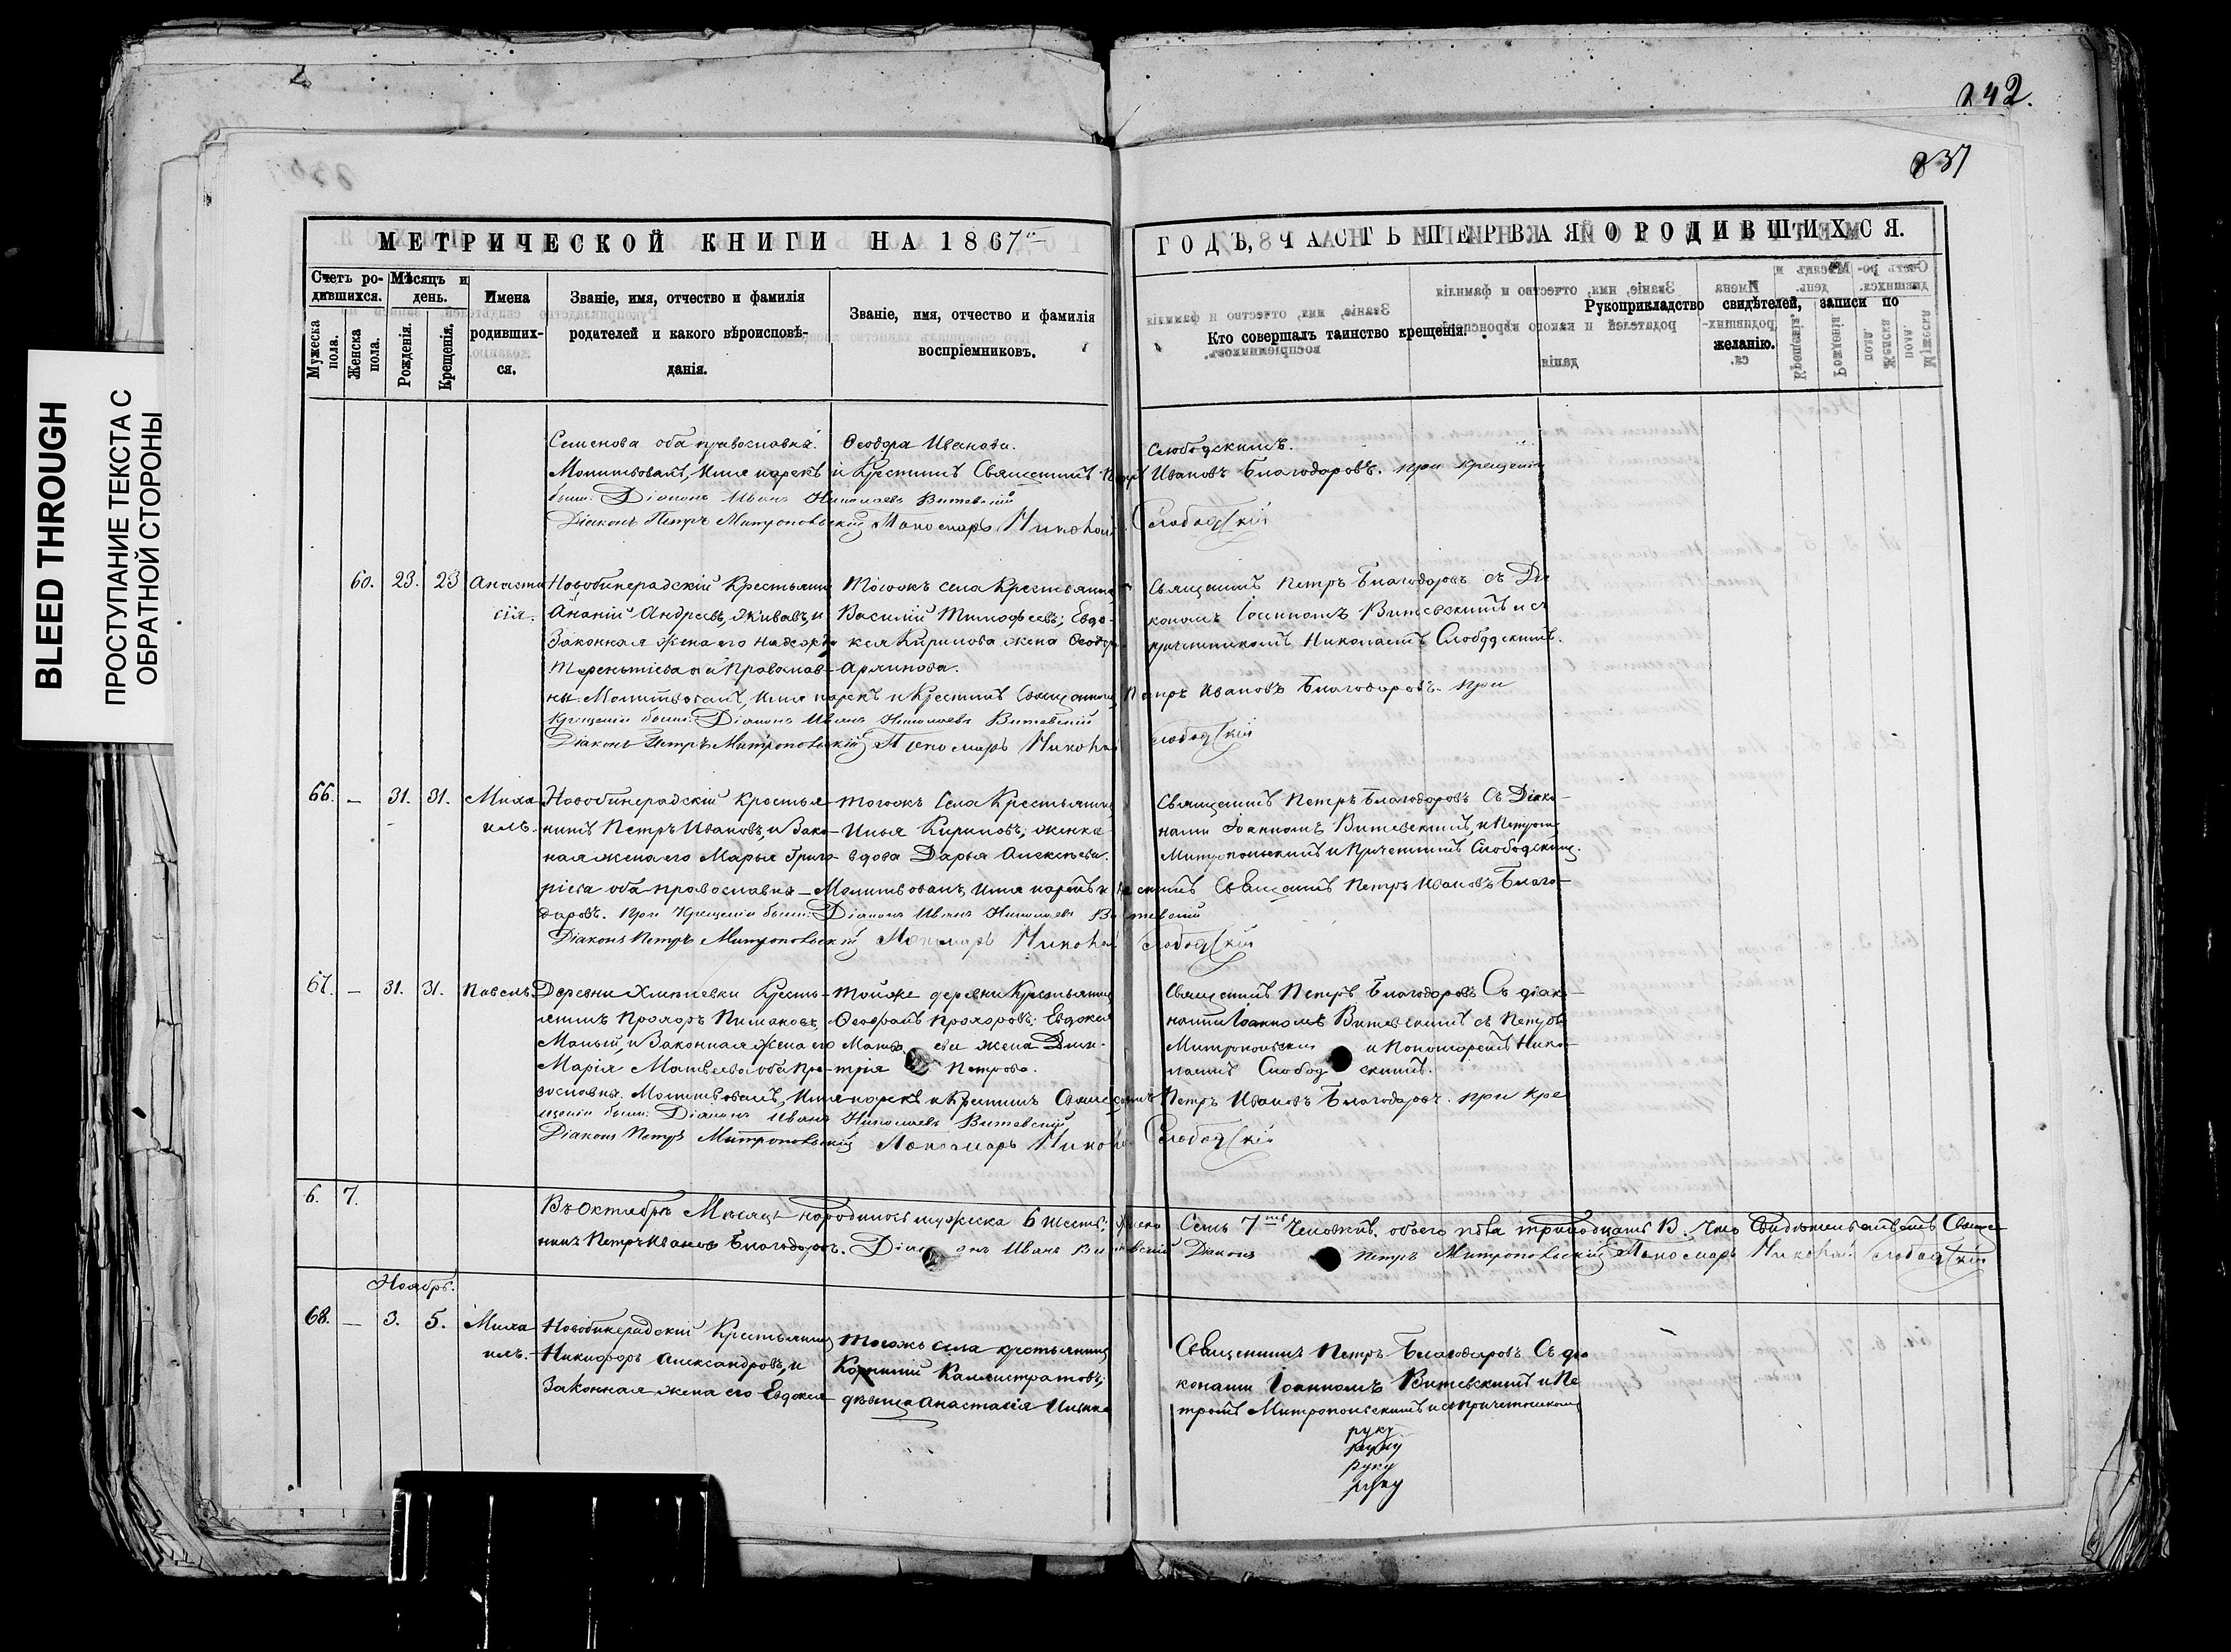 242.
237
BLEED THROUGH
ПРОСТУПАНИЕ ТЕКСТА С
ОБРАТНОЙ СТОРОНЫ
МЕТРИЧЕСКОЙ КНИГИ НА 1867
ГОДЪ, ЧАСТЬ ПЕРВАЯ О РОДИВШИХСЯ.
Счетъ ро-
дившихся.
Мужеска
пола.
Женска
пола.
Мѣсяцъ и
день.
Рожденія.
Крещенія.
Имена
родивших-
ся.
Званіе, имя, отчество и фамилія
родителей и какого вѣроисповѣ-
данія.
Званіе, имя, отчество и фамилія
воспріемниковъ.
Кто совершалъ таинство крещенія.
Рукоприкладство свидѣтелей, записи по
желанію.
Семенова оба православны. Ѳеодора Иванова. Слободскимъ.
Молитвовалъ, имя нарекъ и крестилъ Священникъ Петръ Ивановъ Благодаровъ. при крещеніи
были: Діаконъ Иванъ Николаевъ Витевскій
Діаконъ Петръ Митропольскій Пономарь Николай Слободскій
60. 23. 23 Анаста
сія.
Новобинерадскій Крестьянинъ
Ананій Андреевъ, и
Законная жена его Надежда
Терентіева оба Православ-
Тогожъ села Крестьянинъ
Василій Тимофеевъ; Евдо-
кея Кирилова жена Ѳеодора
Священникъ Петръ Благодаровъ съ Діа
кономъ Іоанномъ Витевскимъ и съ
причетникомъ Николаемъ Слободскимъ.
ны. Молитвовалъ, имя нарекъ и крестилъ Священникъ Петръ Ивановъ Благодаровъ. при
крещеніи были: Діаконъ Иванъ Николаевъ Витевскій
Діаконъ Петръ Митропольскій Пономарь Николай Слободскій
66. — 31. 31. Миха
илъ.
Новобинерадскій Крестья-
нинъ Петръ Ивановъ, и Зако-
ная жена его Марья Григо-
тогожъ Села Крестьянинъ
Илья Кириловъ; женка
вдова Дарья Алексѣева.
Священникъ Петръ Благодаровъ Съ Діако-
нами Іоанномъ Витевскимъ, и Петромъ
Митропольскимъ и Причетникъ Слободскимъ.
ріева оба православны — Молитвовалъ, имя нарекъ и крестилъ Священникъ Петръ Ивановъ Благо-
даровъ. при крещеніи были: Діаконъ Иванъ Николаевъ Витевскій
Діаконъ Петръ Митропольскій Пономарь Николай Слободскій
67. — 31. 31. Павелъ.
Деревни Кресть-
янинъ Прохоръ
и Законная жена его
Марія Матвеева оба Пра-
Тойже деревни Крестьянинъ
Прохоровъ; Евдокея
жена Дми-
трія Петрова.
Священникъ Петръ Благодаровъ Съ діако-
нами Іоанномъ Витевскимъ съ Петромъ
Митропольским и Пономаремъ Нико-
лаемъ Слободскимъ.
вославны. Молитвовалъ, имя нарекъ и крестилъ Священникъ Петръ Ивановъ Благодаровъ. при кре
щеніи были: Діаконъ Иванъ Николаевъ Витевскій
Діаконъ Петръ Митропольскій Пономарь Николай Слободскій
6. 7.
Въ Октябрѣ Мѣсяцѣ народилось мужеска 6 шесть, женска Семь 7 человѣкъ. обоего пола тринадцать Свидѣтельствуемъ Священ-
никъ Петръ Ивановъ Благодаровъ. Діаконъ Иванъ Витевскій Діаконъ Петръ Митропольскій Пономарь Николай Слободскій
Ноябрь.
68. — 3. 5. Миха
илъ.
Новобинерадскій Крестьянинъ
Никифоръ Александровъ, и
Законная жена его Евдокея
тогожъ села крестьянинъ
Корнилій Каллистратовъ;
дѣвица Анастасія
Священникъ Петръ Благодаровъ Съ діа
конами Іоанномъ Витевскимъ и Пе
тромъ Митропольскимъ и съ причетникомъ
руку
руку
руку
руку